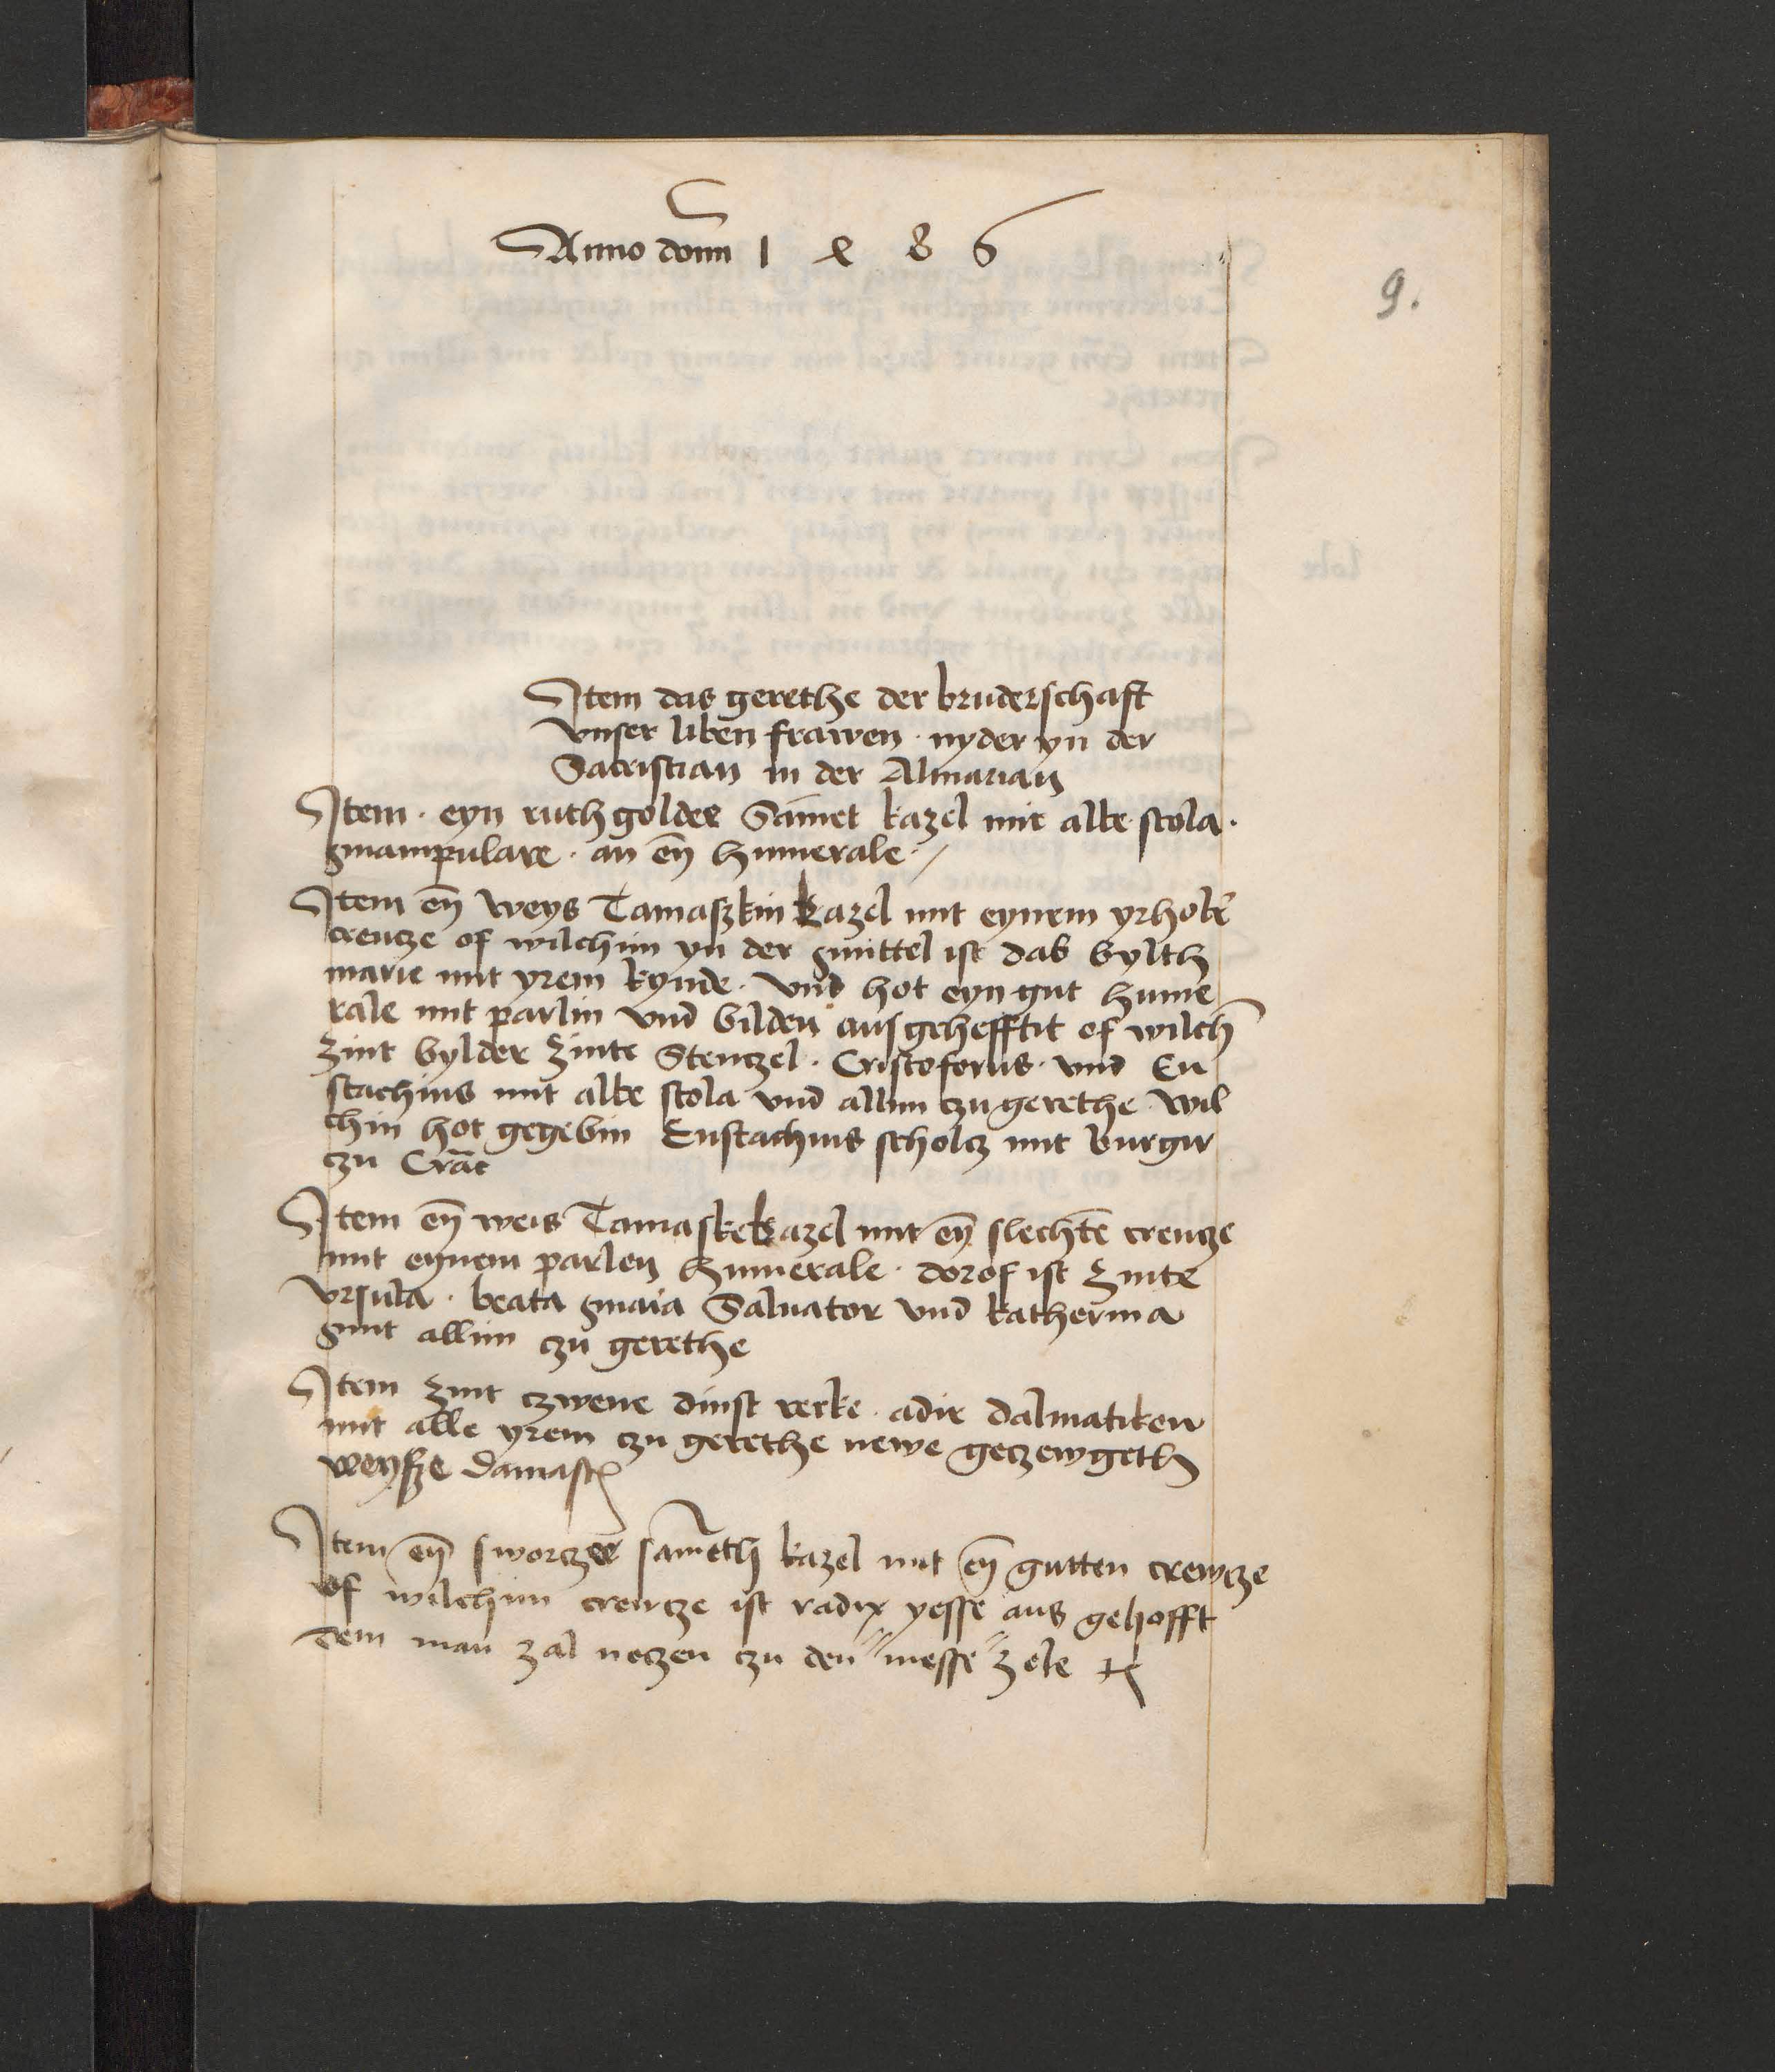 Anno domī 1 4 8 6
9.
Item das gerethe der bruderschaft
vnser liben frawen · nyder yn der
Sacristian in der Almarian
Item · eyn ruth golder Sāmet kazel mit albe stola ·
manipulare · an eȳ humerale ·/
Item eȳ weys Tamaszkin kazel mit eynem yrhobē
creucze of wilchim yn der mittel ist das bylth
marie mit yrem kynde · vnd hot eyn gut hume
rale mit parlin vnd bilden ausgehefftit of wilch
zint bylder zinte Stenczel · Cristoforus · vnd Eu
stachius mit albe stola vnd allim czu gerethe · wil
chin hot gegebin Eustachius scholcz mit burger
czu Crāc
Item eȳ weis Tamaske kazel mit eȳ slechtē creucze
mit eynem parlen humerale · dorof ist zinte
vrsula · beata maīa Saluator vnd katherina
mit allim czu gerethe
Item zint czwene dinst rerke · adir dalmatiken
mit alle yrem czu gerethe newe geczewgeth
weysze damast
Item eȳ sworczer sam̄eth kazel mit eȳ gutten crewcze
of wilchim creucze ist radix yesse aus gehofft
dem man zal noczen czu den "messe" zele